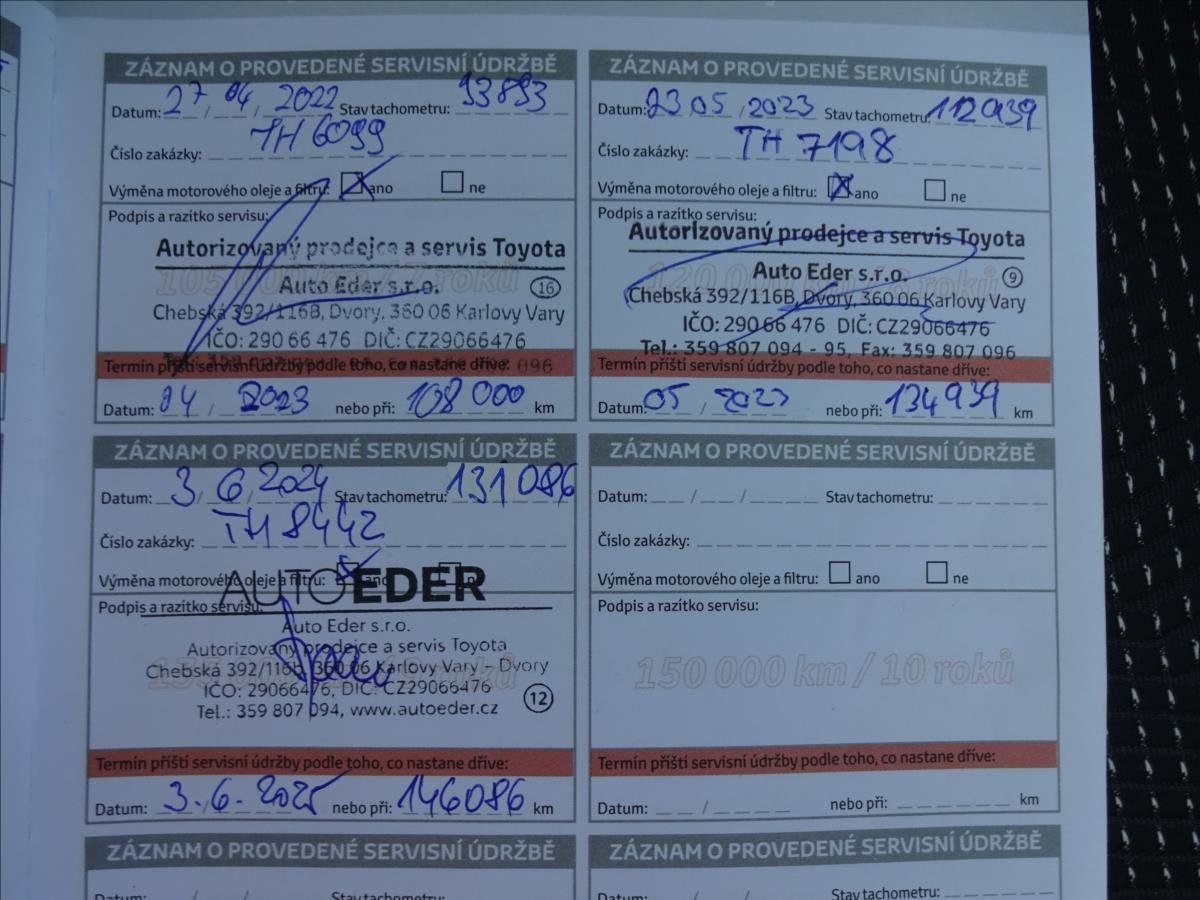 ZÁZNAM O PROVEDENÉ SERVISNÍ ÚDRŽBĚ
Datum: 27/04/2022 Stav tachometru: 93893
Číslo zakázky: TH 6099
Výměna motorového oleje a filtru: ano ne
Podpis a razítko servisu:
Autorizovaný prodejce a servis Toyota
Auto Eder s.r.o. 16
Chebská 392/116B, Dvory, 360 06 Karlovy Vary
IČO: 290 66 476 DIČ: CZ29066476
Termín příští servisní údržby podle toho, co nastane dříve:
Datum: 04/2023 nebo při: 108 000 km
ZÁZNAM O PROVEDENÉ SERVISNÍ ÚDRŽBĚ
Datum: 23 05/2023 Stav tachometru: 112939
Číslo zakázky: TH 7198
Výměna motorového oleje a filtru: ano ne
Podpis a razítko servisu:
Autorizovaný prodejce a servis Toyota
120 000
Auto Eder s.r.o. 9
Chebská 392/116B, Dvory, 360 06 Karlovy Vary
IČO: 290 66 476 DIČ: CZ29066476
Tel.: 359 807 094 - 95, Fax: 359 807 096
Termín příští servisní údržby podle toho, co nastane dříve:
Datum: 05/ nebo při: 134939 km
ZÁZNAM O PROVEDENÉ SERVISNÍ ÚDRŽBĚ
Datum: 3/6/2024 Stav tachometru: 131086
Číslo zakázky: TH 8442
Výměna motorového oleje a filtru: ano ne
AUTOEDER
Podpis a razítko servisu:
Auto Eder s.r.o.
Autorizovaný prodejce a servis Toyota
Chebská 392/116b, 360 06 Karlovy Vary - Dvory
IČO: 29066476, DIČ: CZ29066476
Tel.: 359 807 094, www.autoeder.cz 12
Termín příští servisní údržby podle toho, co nastane dříve:
Datum: 3.6.2025 nebo při: 146086 km
ZÁZNAM O PROVEDENÉ SERVISNÍ ÚDRŽBĚ
Datum: / / Stav tachometru:
Číslo zakázky:
Výměna motorového oleje a filtru: ano ne
Podpis a razítko servisu:
150 000 km / 10 roků
Termín příští servisní údržby podle toho, co nastane dříve:
Datum: / nebo při: km
ZÁZNAM O PROVEDENÉ SERVISNÍ ÚDRŽBĚ
Datum: / / Stav tachometru:
ZÁZNAM O PROVEDENÉ SERVISNÍ ÚDRŽBĚ
Datum: / / Stav tachometru: